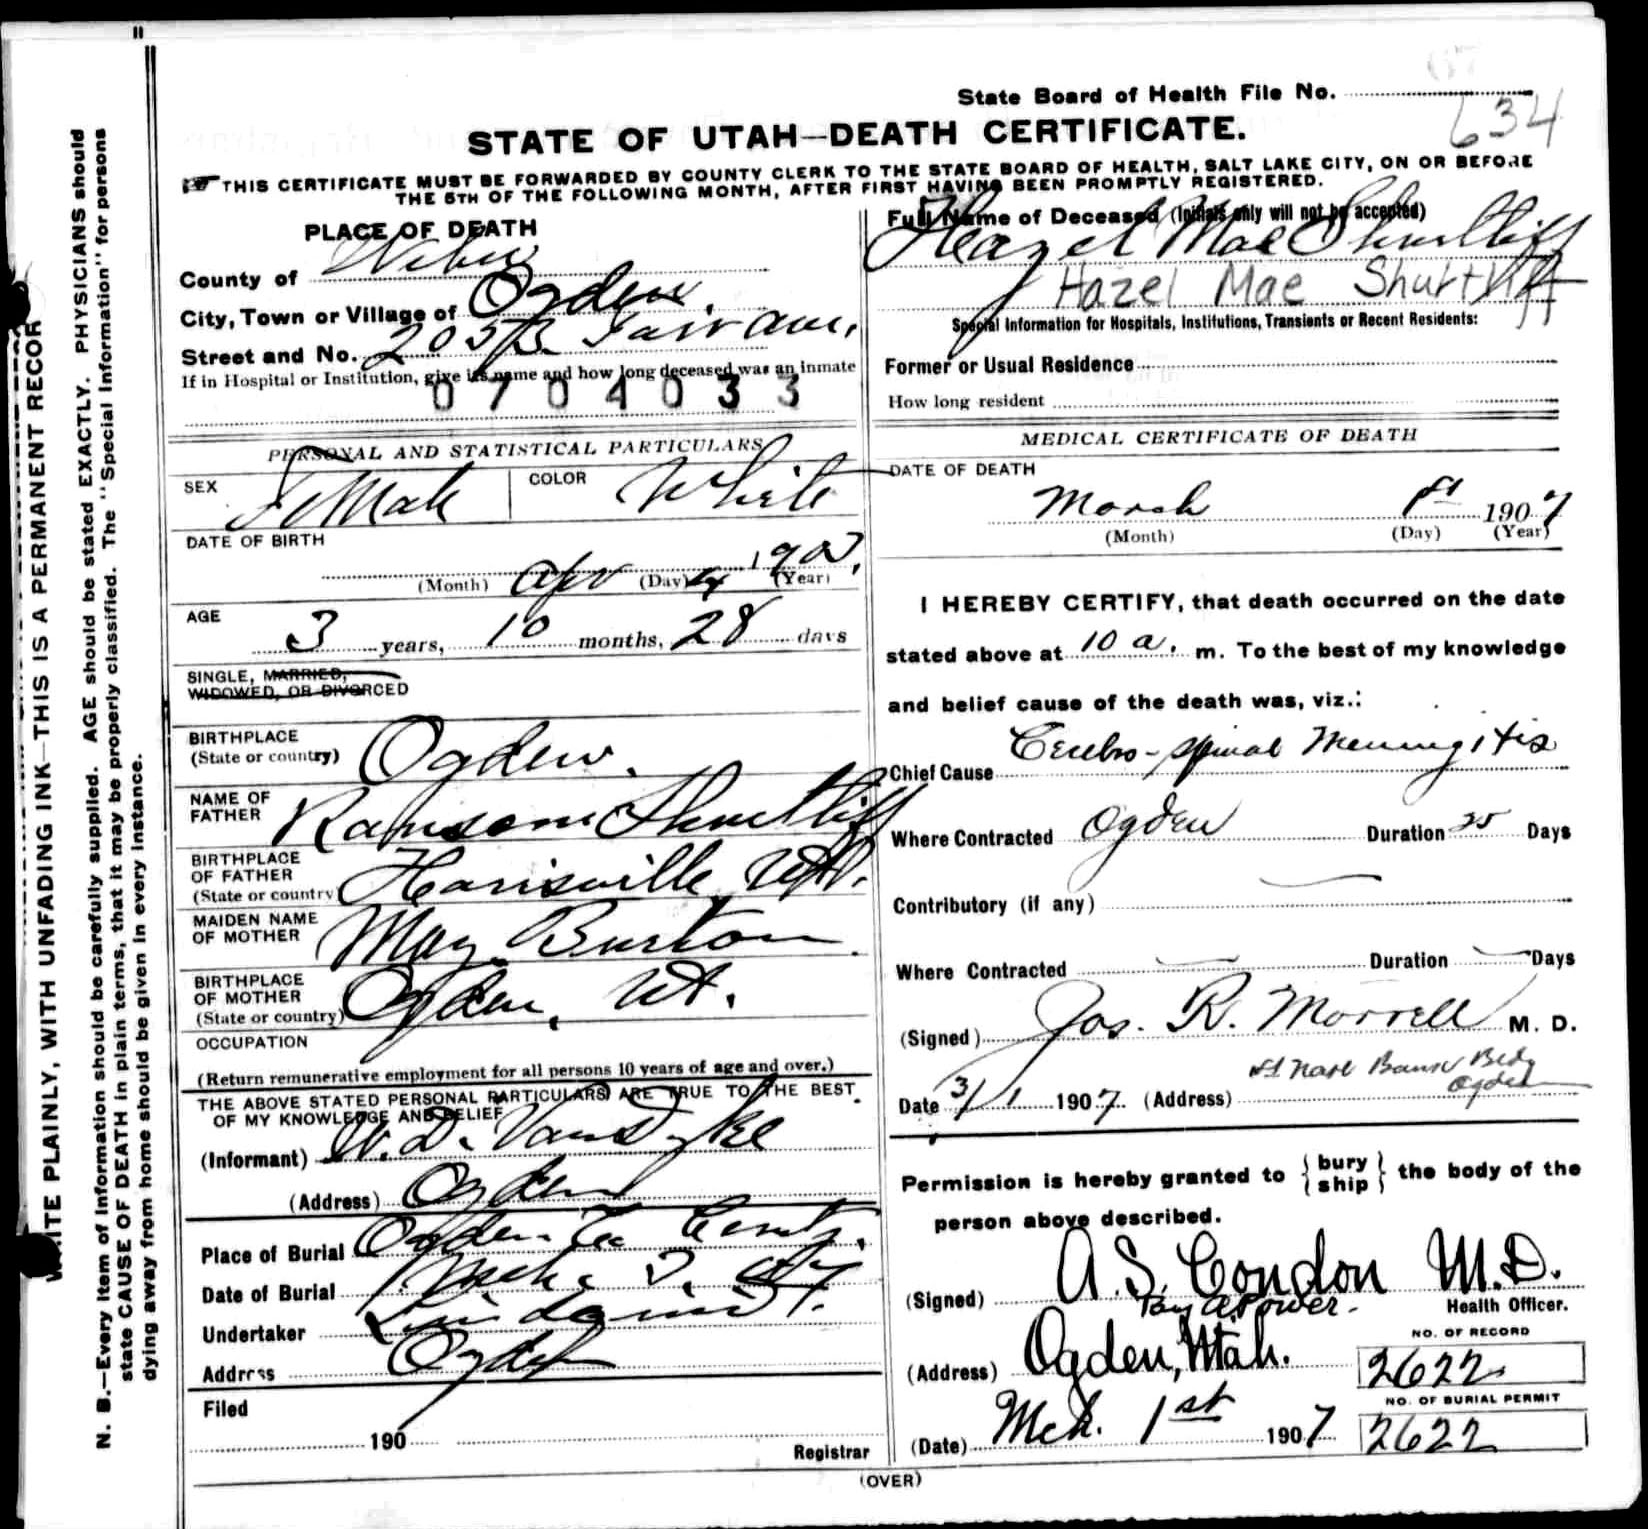 State Board of Health File No.
634
STATE OF UTAH—DEATH CERTIFICATE.
THIS CERTIFICATE MUST BE FORWARDED BY COUNTY CLERK TO THE STATE BOARD OF HEALTH, SALT LAKE CITY, ON OR BEFORE
THE 5TH OF THE FOLLOWING MONTH, AFTER FIRST HAVING BEEN PROMPTLY REGISTERED.
PLACE OF DEATH
County of Weber
City, Town or Village of Ogden.
Street and No.
If in Hospital or Institution, give its name and how long deceased was an inmate
0704033
PERSONAL AND STATISTICAL PARTICULARS
SEX FeMale COLOR White
DATE OF BIRTH
(Month) Apr (Day) 4 (Year)
AGE
3 years, 10 months, 28 days
SINGLE, MARRIED,
WIDOWED, OR DIVORCED
BIRTHPLACE
(State or country) Ogden.
NAME OF
FATHER Ransom Shurtliff
BIRTHPLACE
OF FATHER
(State or country Harisville Ut.
MAIDEN NAME
OF MOTHER May Burton
BIRTHPLACE
OF MOTHER
(State or country) Ogden, Ut.
OCCUPATION
(Return remunerative employment for all persons 10 years of age and over.)
THE ABOVE STATED PERSONAL PARTICULARS ARE TRUE TO THE BEST
OF MY KNOWLEDGE AND BELIEF
(Informant) W. D. VanDyke
(Address) Ogden
Place of Burial Ogden
Date of Burial
Undertaker
Address Ogden
Filed
190
Registrar
Full Name of Deceased (Initials only will not be accepted)
Hazel Mae Shurtliff
Hazel Mae Shurtliff
Special Information for Hospitals, Institutions, Transients or Recent Residents:
Former or Usual Residence
How long resident
MEDICAL CERTIFICATE OF DEATH
DATE OF DEATH
March 1st 1907
(Month) (Day) (Year)
I HEREBY CERTIFY, that death occurred on the date
stated above at 10 a. m. To the best of my knowledge
and belief cause of the death was, viz.:
Chief Cause Cerebro-spinal Meningitis
Where Contracted Ogden Duration 25 Days
Contributory (if any)
Where Contracted Duration Days
(Signed) Jos. R. Morrell M. D.
Date 3/1 1907. (Address) 1st Natl Bank Bldg
Ogden
Permission is hereby granted to {bury
ship} the body of the
person above described.
(Signed) A. S. Condon M.D.
Health Officer.
(Address) Ogden, Utah.
NO. OF RECORD
2622
NO. OF BURIAL PERMIT
2622
(Date) Mch. 1st 1907
(OVER)
WRITE PLAINLY, WITH UNFADING INK—THIS IS A PERMANENT RECOR
N. B.—Every item of information should be carefully supplied. AGE should be stated EXACTLY. PHYSICIANS should
state CAUSE OF DEATH in plain terms, that it may be properly classified. The "Special Information" for persons
dying away from home should be given in every instance.